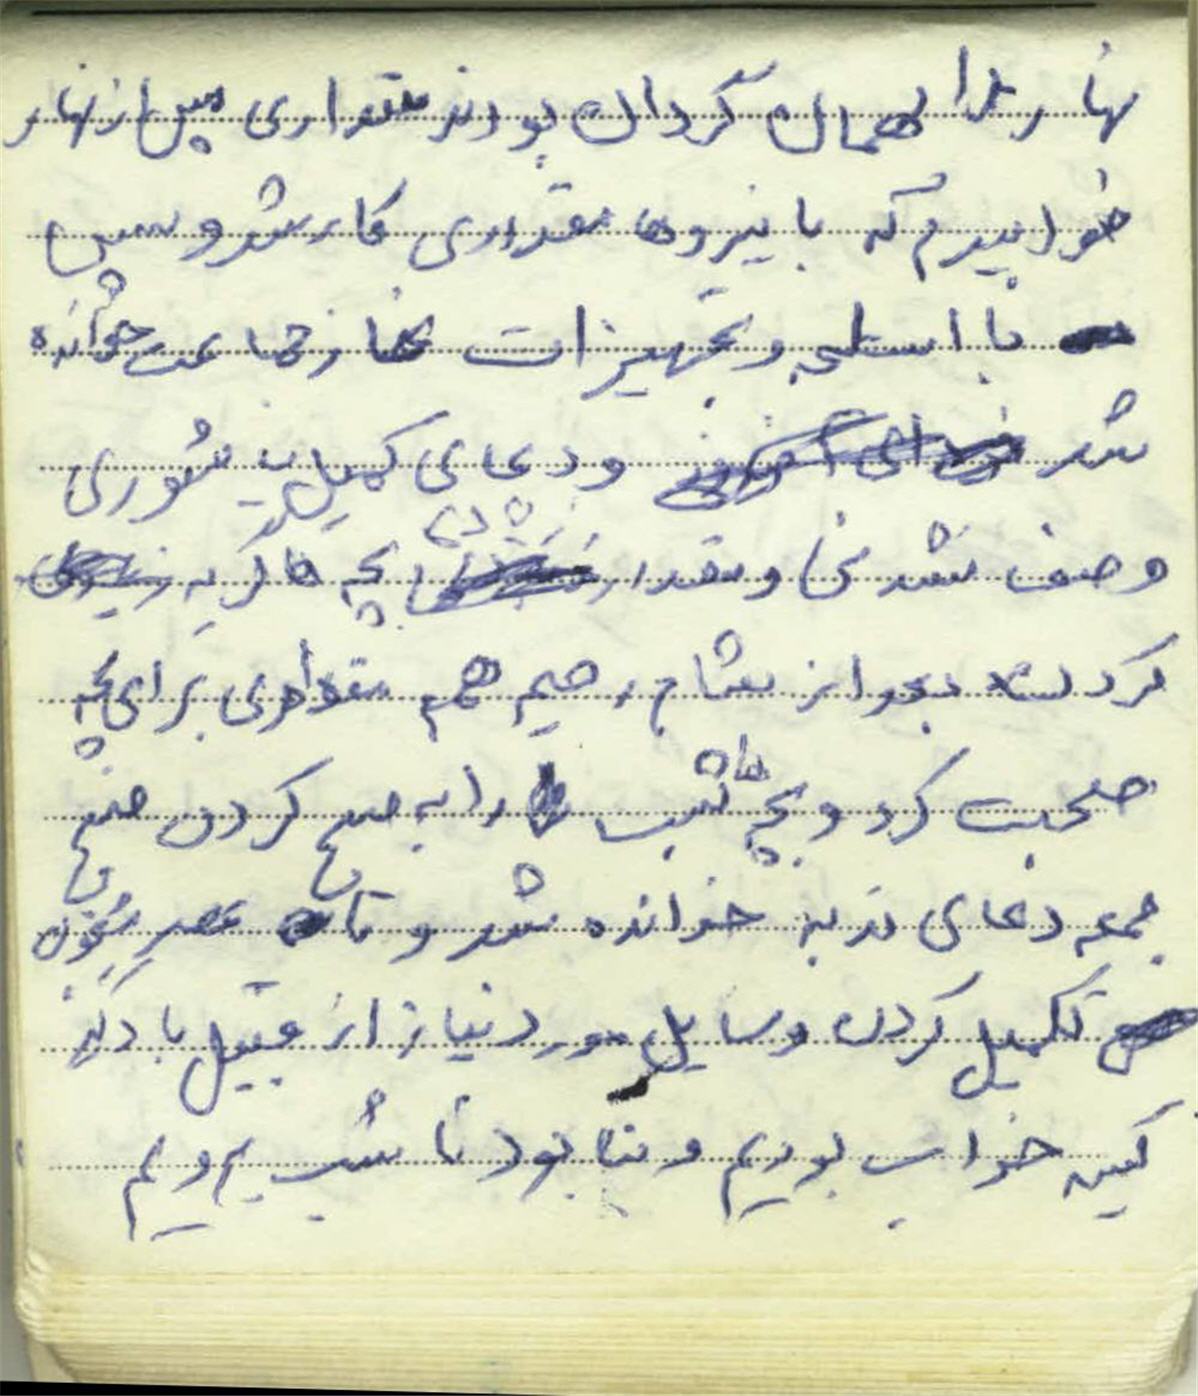 نهار را مهمان گردان بودند مقداری پس از نهار
خوابیدم که با نیروها مقداری کار شد و سپس
با اسلحه و تجهیزات نماز جماعت خوانده
شد و دعای کمیل با شوری
وصف نشدنی و مقدار بچه ها گریه
کردند بعد از شام رحیم هم مقداری برای بچه
ها صحبت کرد و بچه ها شب را به صبح کردن صبح
جمعه دعای ندبه خوانده شد و تا عصر
تکمیل کردن وسایل مورد نیاز از قبیل بادگیر
کیسه خواب بودیم و بنا بود تا شب برویم